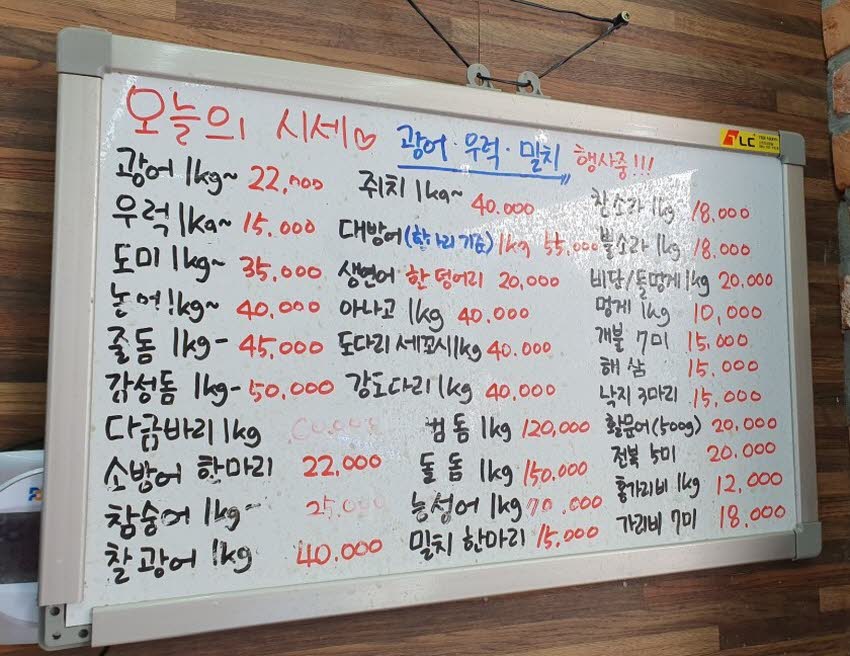 오늘의 시세♡ 광어·우럭·밀치 행사중!!!
광어 1kg~ 22,000
우럭 1kg~ 15.000
도미 1kg~ 35,000
농어 1kg~ 40,000
줄돔 1kg- 45,000
감성돔 1kg- 50,000
다금바리 1kg
소방어 한마리 22,000
참숭어 1kg- 25,000
찰광어 1kg 40.000
쥐치 1kg~ 40.000
대방어(한마리 기준) 1kg 55,000
생연어 한덩어리 20,000
아나고 1kg 40.000
도다리 세꼬시 1kg 40.000
강도다리 1kg 40,000
범돔 1kg 120,000
돌돔 1kg 150.000
능성어 1kg 70.000
밀치 한마리 15,000
참소라 1kg 18.000
뿔소라 1kg 18.000
비단/돌멍게 1kg 20,000
멍게 1kg 10,000
개불 7미 15,000
해삼 15.000
낙지 3마리 15,000
활문어(500g) 20,000
전복 5미 20.000
홍가리비 1kg 12,000
가리비 7미 18,000
LC